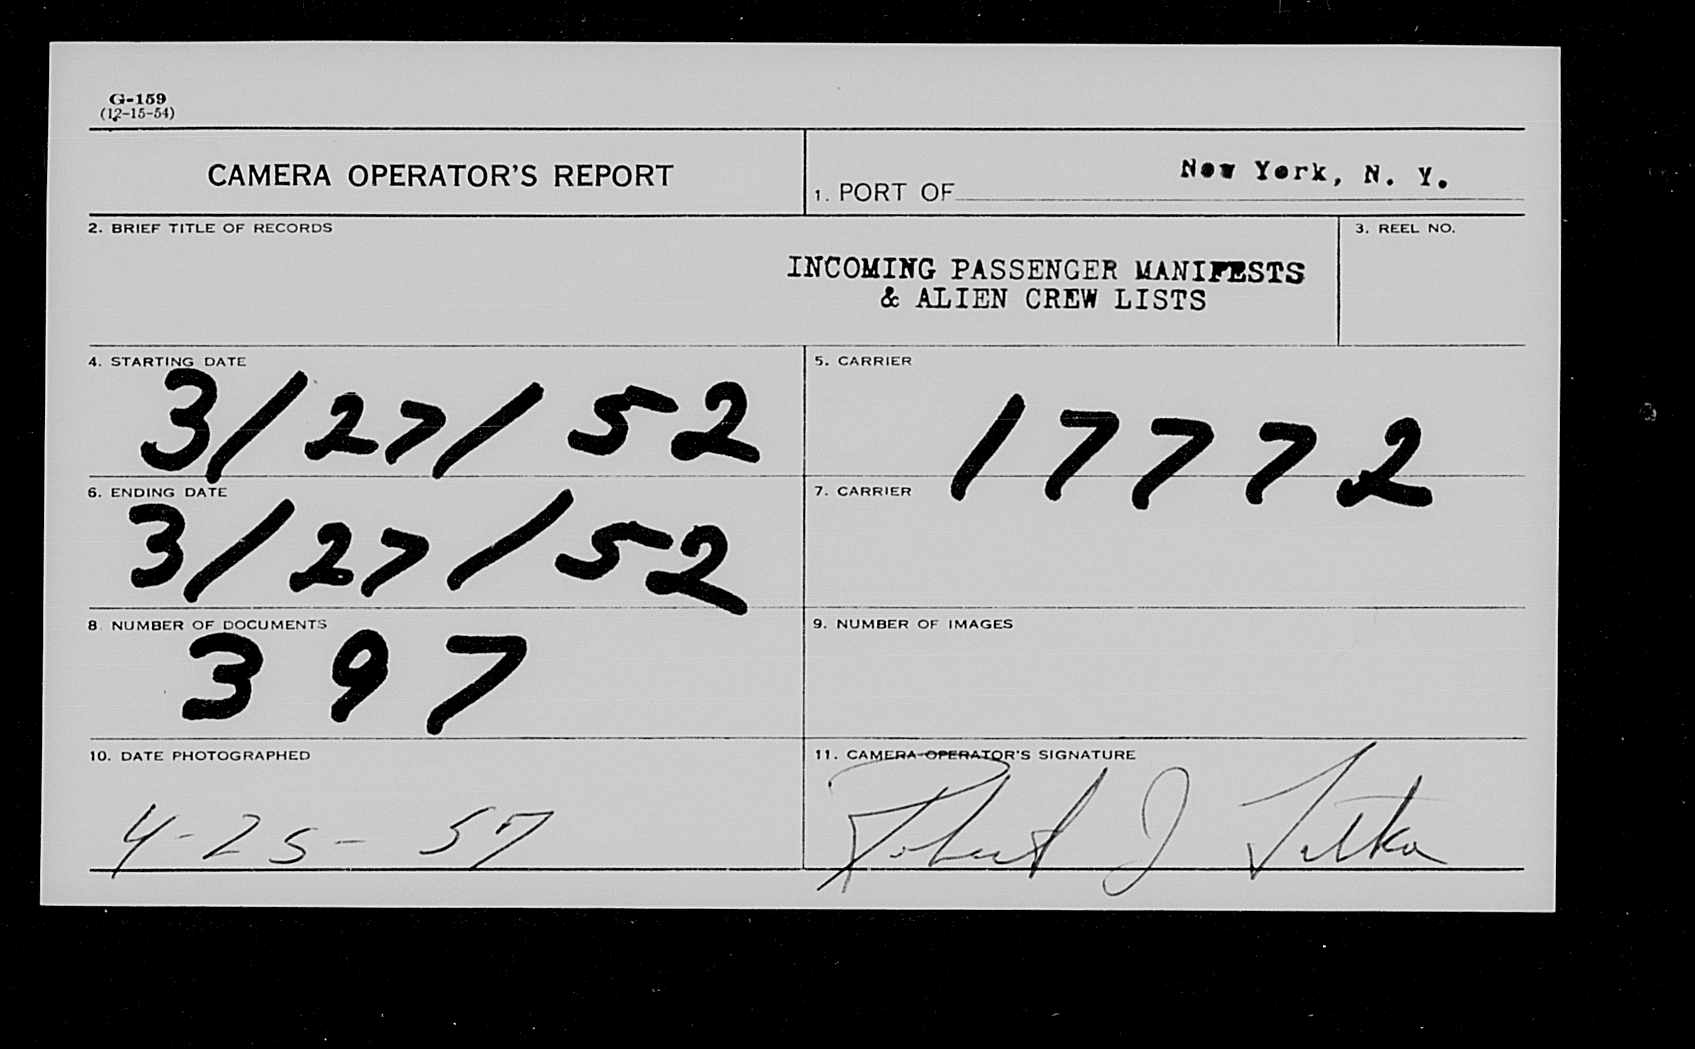 G-159
(12-15-54)
CAMERA OPERATOR'S REPORT
1. PORT OF New York, N. Y.
2. BRIEF TITLE OF RECORDS
INCOMING PASSENGER MANIFESTS
& ALIEN CREW LISTS
3. REEL NO.
4. STARTING DATE
3/27/52
5. CARRIER
17772
6. ENDING DATE
3/27/52
7. CARRIER
8 NUMBER OF DOCUMENTS
397
9. NUMBER OF IMAGES
10. DATE PHOTOGRAPHED
4-25-57
11. CAMERA OPERATOR'S SIGNATURE
Robert J